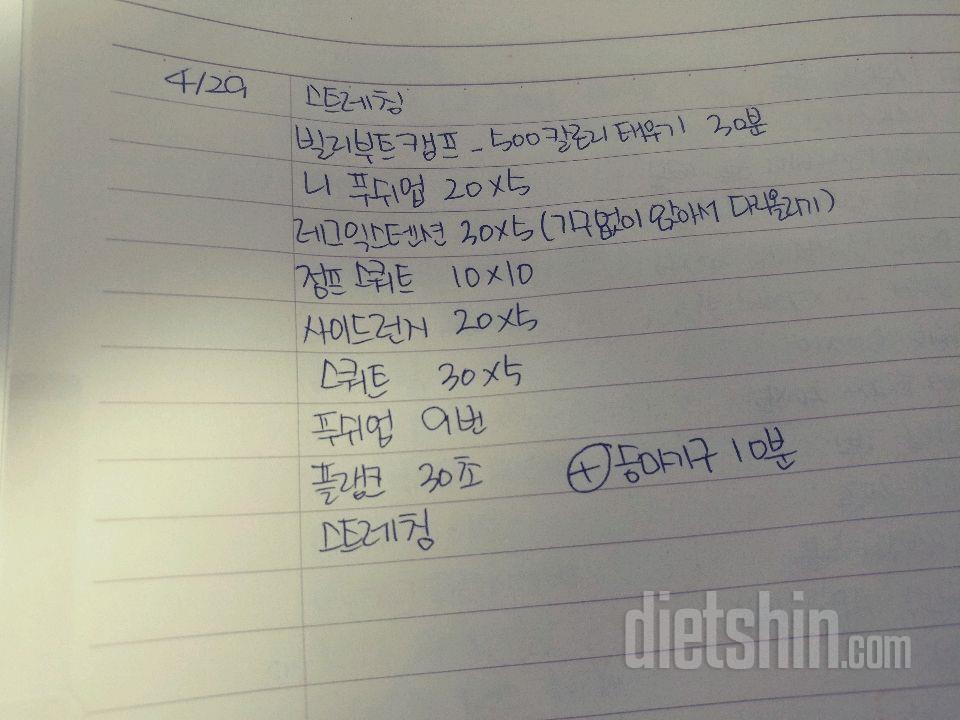 4/29 스트레칭
빌리부트캠프 - 500칼로리 태우기 30분
니 푸쉬업 20x5
레그익스텐션 30x5 (기구없이 앉아서 다리올리기)
점프스쿼트 10x10
사이드런지 20x5
스쿼트 30x5
푸쉬업 9번
플랭크 30초 + 등야기구 10분
스트레칭
dietshin.com